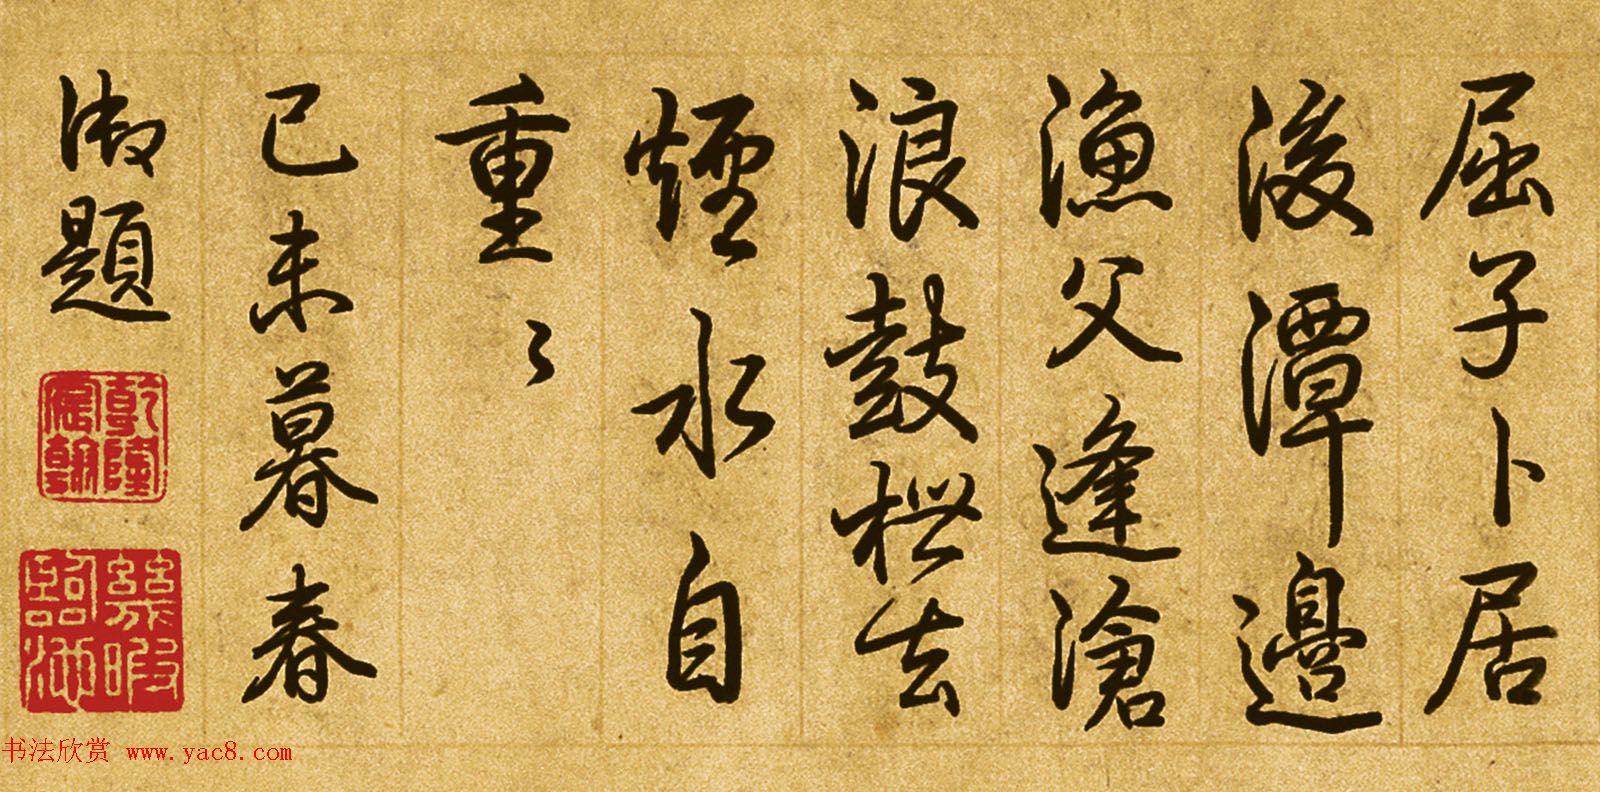 屈子卜居
後潭邊
漁父逢滄
浪鼓枻去
煙水自
重〻
己未暮春
御題
乾隆宸翰
幾暇臨池
书法欣赏 www.yac8.com